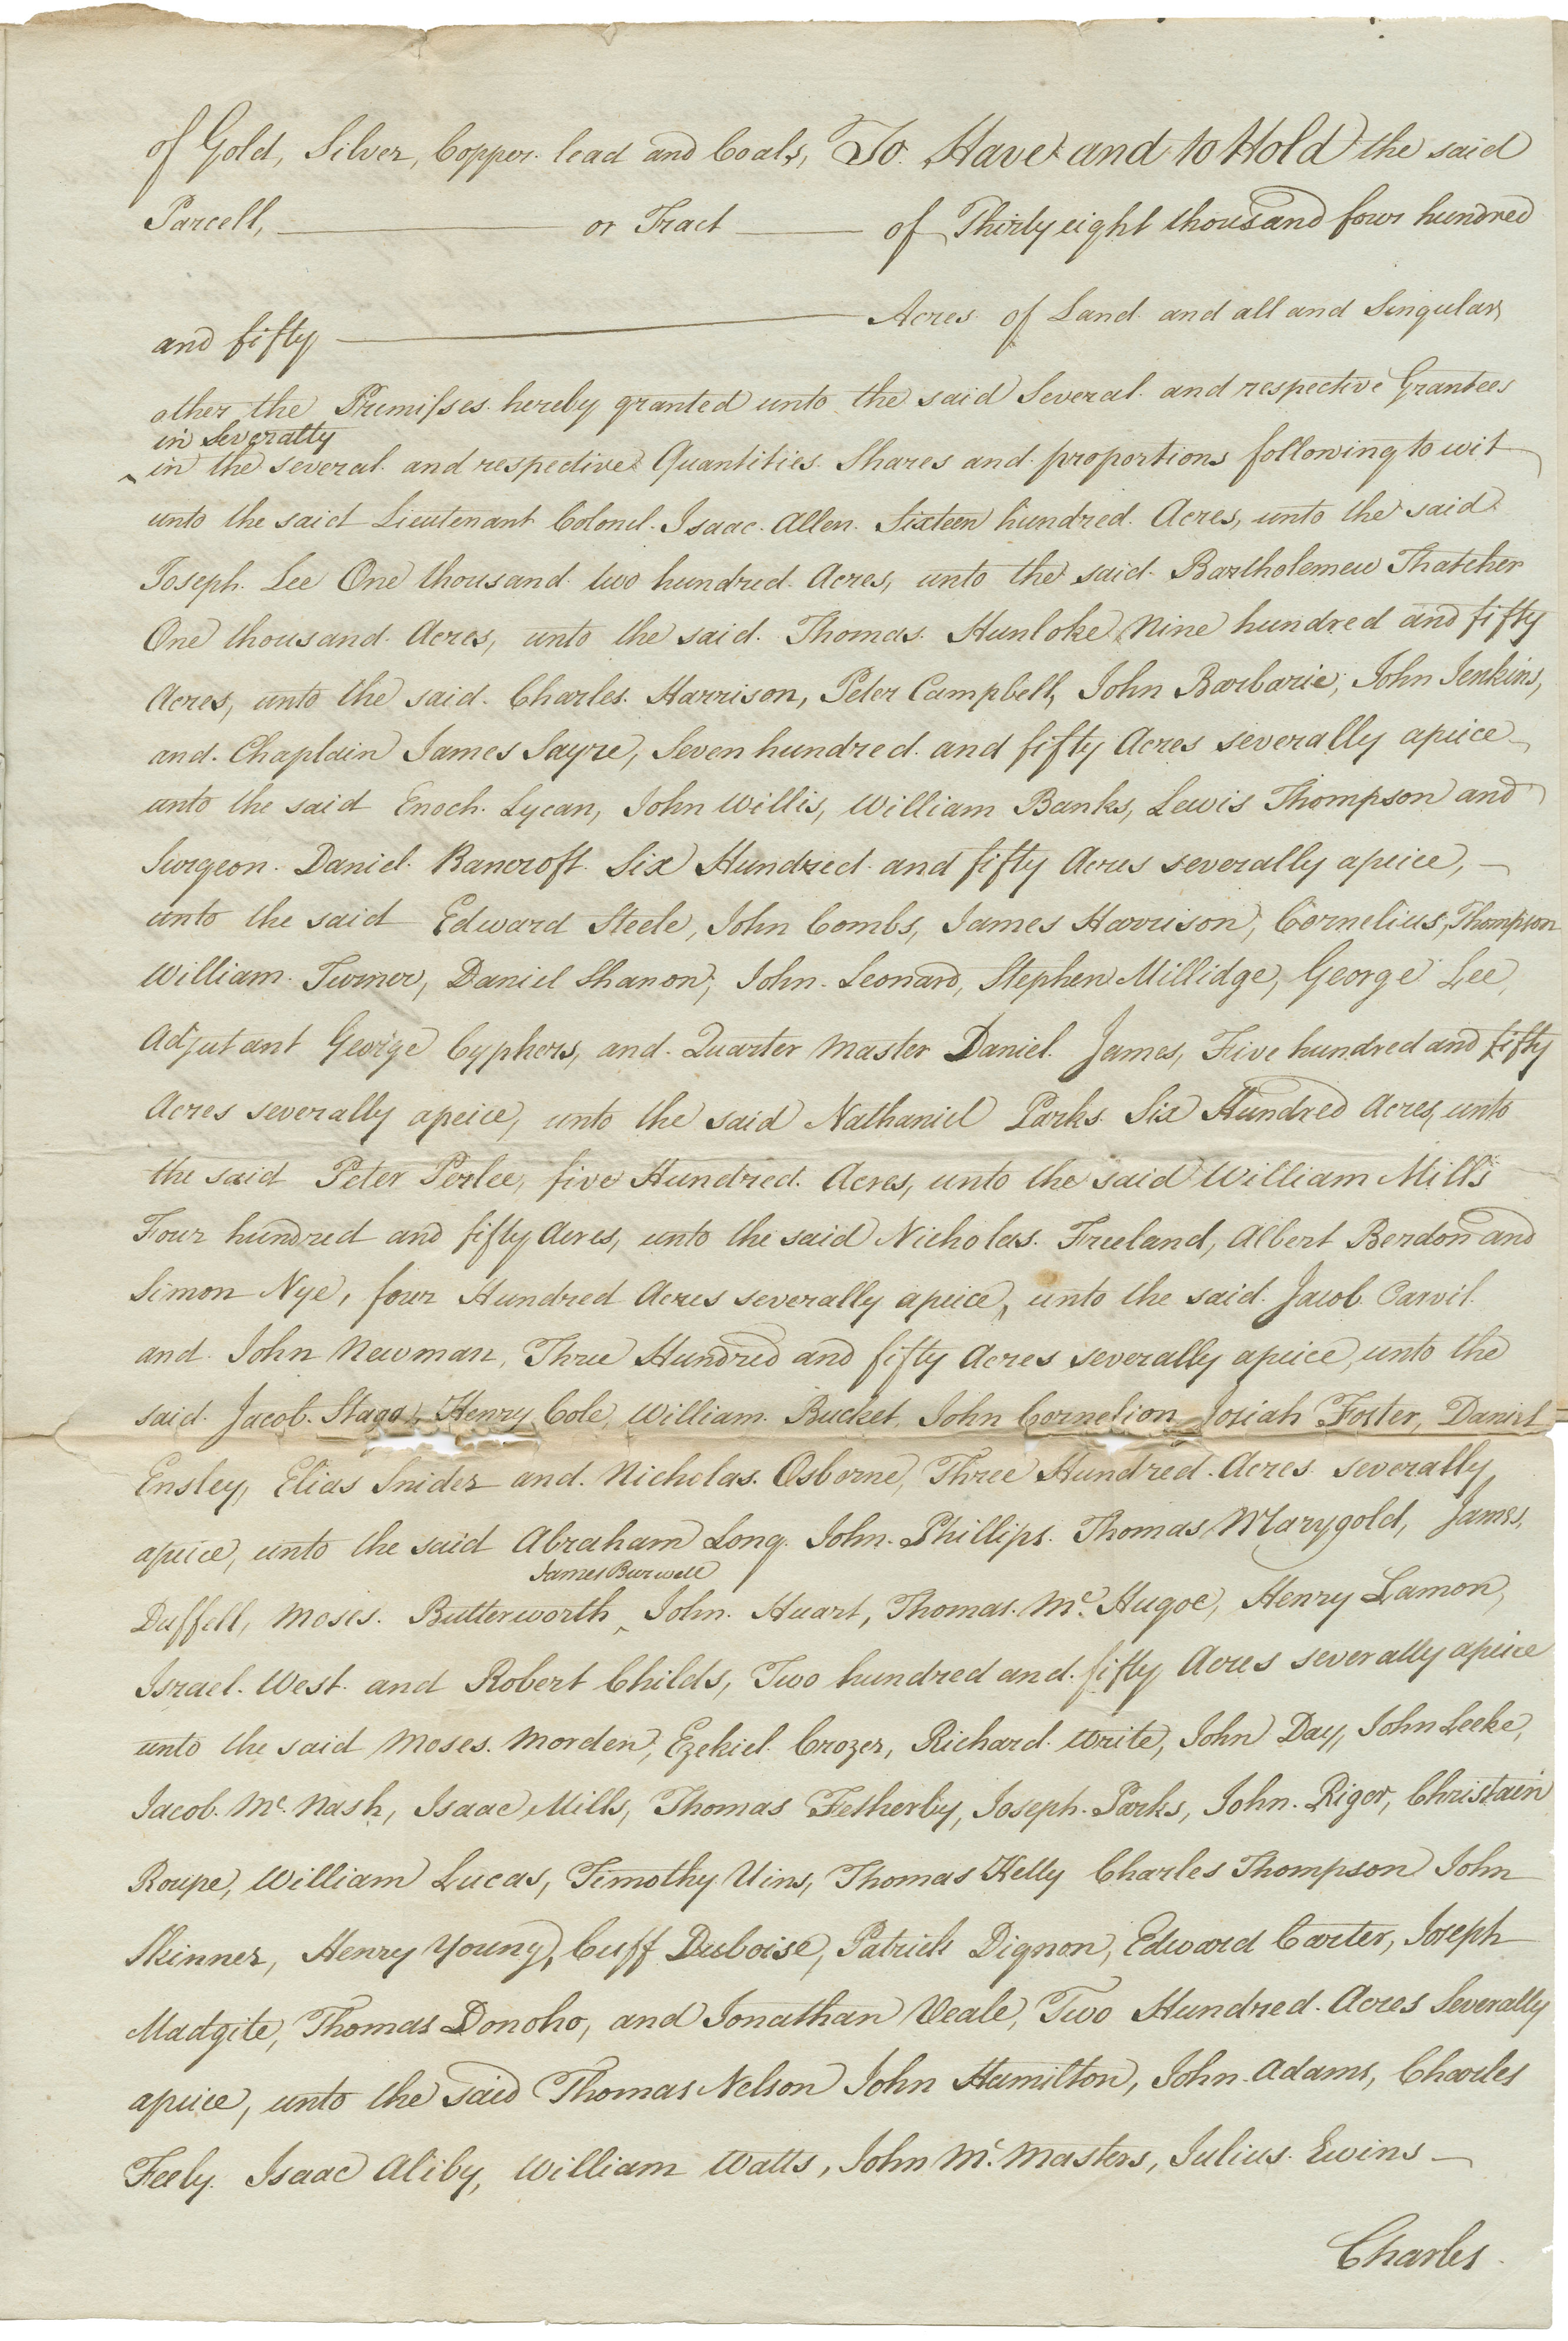 of Gold, Silver, Copper. lead and Coals, To Have and to Hold the said
Parcell, or Tract of Thirty eight thousand four hundred
and fifty Acres of Land and all and Singular
other the Premisses hereby granted unto the said Several and respective Grantees
in Severalty
in the several and respective Quantities Shares and proportions following to wit
unto the said Lieutenant Colonel Isaac Allen Sixteen hundred Acres, unto the said
Joseph Lee One thousand two hundred Acres, unto the said Bartholemew Thatcher
One thousand Acres, unto the said Thomas Hunloke Nine hundred and fifty
Acres, unto the said Charles Harrison, Peter Campbell, John Barbarie, John Jenkins,
and Chaplain James Sayre, Seven hundred and fifty Acres severally apeice
unto the said Enoch Lycan, John Willis, William Banks, Lewis Thompson and
Surgeon Daniel Bancroft Six Hundred and fifty Acres severally apeice,
unto the said Edward Steele, John Combs, James Harrison, Cornelius, Thompson
William Turner, Daniel Shanon, John Leonard, Stephen Millidge, George Lee,
Adjutant George Cyphers, and Quarter Master Daniel James, Five hundred and fifty
Acres severally apeice, unto the said Nathaniel Parks Six Hundred Acres, unto
the said Peter Perlee, five Hundred Acres, unto the said William Mills
Four hundred and fifty Acres, unto the said Nicholas Freeland, Albert Berdon and
Simon Nye, four Hundred Acres severally apeice, unto the said Jacob Carvil
and John Newman, Three Hundred and fifty Acres severally apeice, unto the
said Jacob Stagg, Henry Cole, William Bucket, John Cornelion Josiah Foster, Daniel
Ensley, Elias Snider and Nicholas Osborne, Three Hundred Acres severally
apeice, unto the said Abraham Long John Phillips Thomas Marygold, James,
James Burwell
Duffell, Moses Butterworth, John Huart, Thomas Mc Hugoe, Henry Lamon,
Israel West and Robert Childs, Two hundred and fifty Acres severally apeice
unto the said Moses Morden, Ezekiel Crozer, Richard Write, John Day, John Leeke,
Jacob Mc Nash, Isaac Mills, Thomas Fetherby, Joseph Parks, John Rigor, Christain
Roupe, William Lucas, Timothy Uins, Thomas Kelly Charles Thompson John
Skinner, Henry Young, Cuff Duboise, Patrick Dignon, Edward Carter, Joseph
Madgite, Thomas Donoho, and Jonathan Veale, Two Hundred Acres Severally
apeice, unto the said Thomas Nelson John Hamilton, John Adams, Charles
Feely Isaac Aliby, William Watts, John Mc Masters, Julius Ewins
Charles